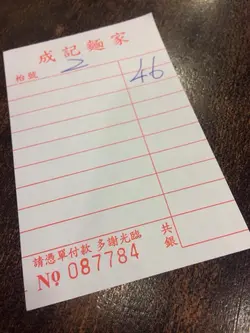 成記麵家
枱號 2 46
請憑單付款 多謝光臨
共銀
No 087784